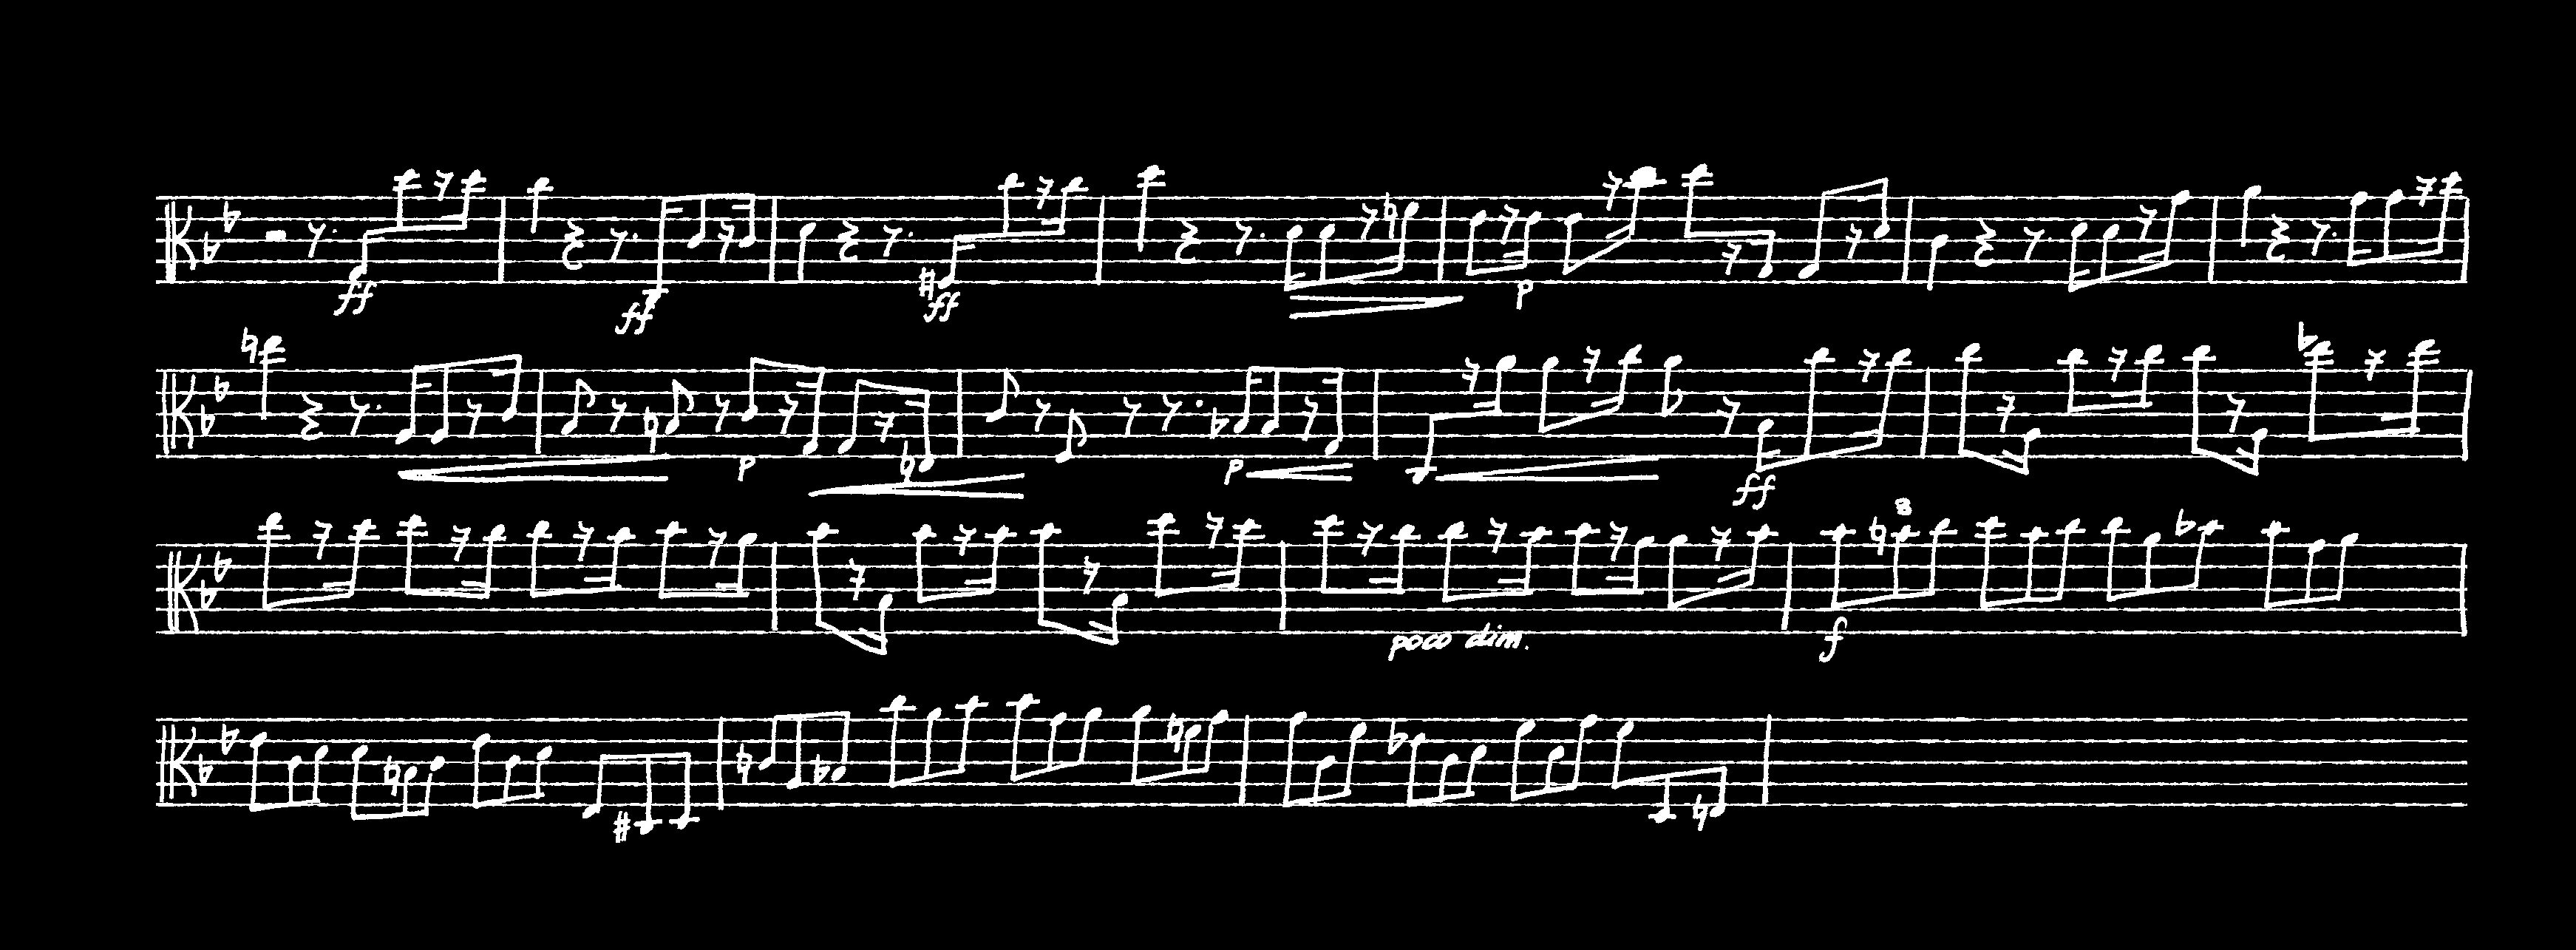 ff ff ff p
p p ff
8
poco dim. f